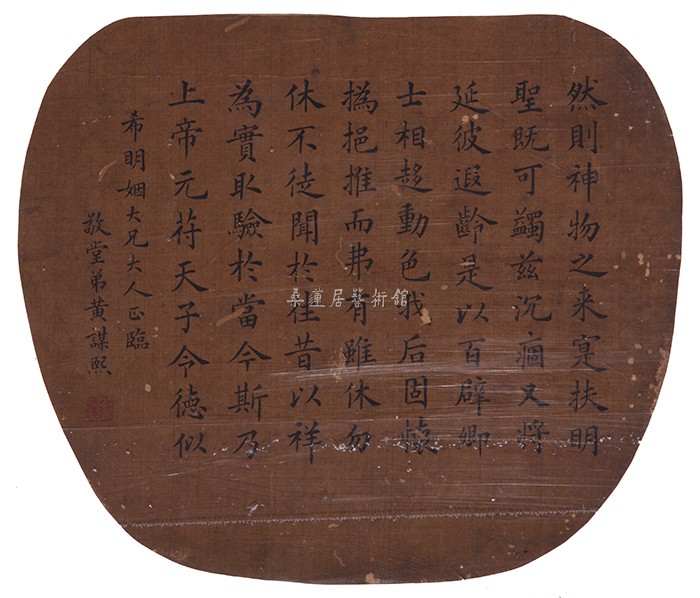 然則神物之来寔扶明
聖既可蠲兹沉痼又將
延彼遐齡是以百辟卿
士相趍動色我后固懐
撝挹推而弗有雖休勿
休不徒聞於往昔以祥
為實取驗於當今斯乃
上帝元苻天子令德似
希明姻大兄大人正臨
敬堂弟黄謀熙
桑蓮居藝術館